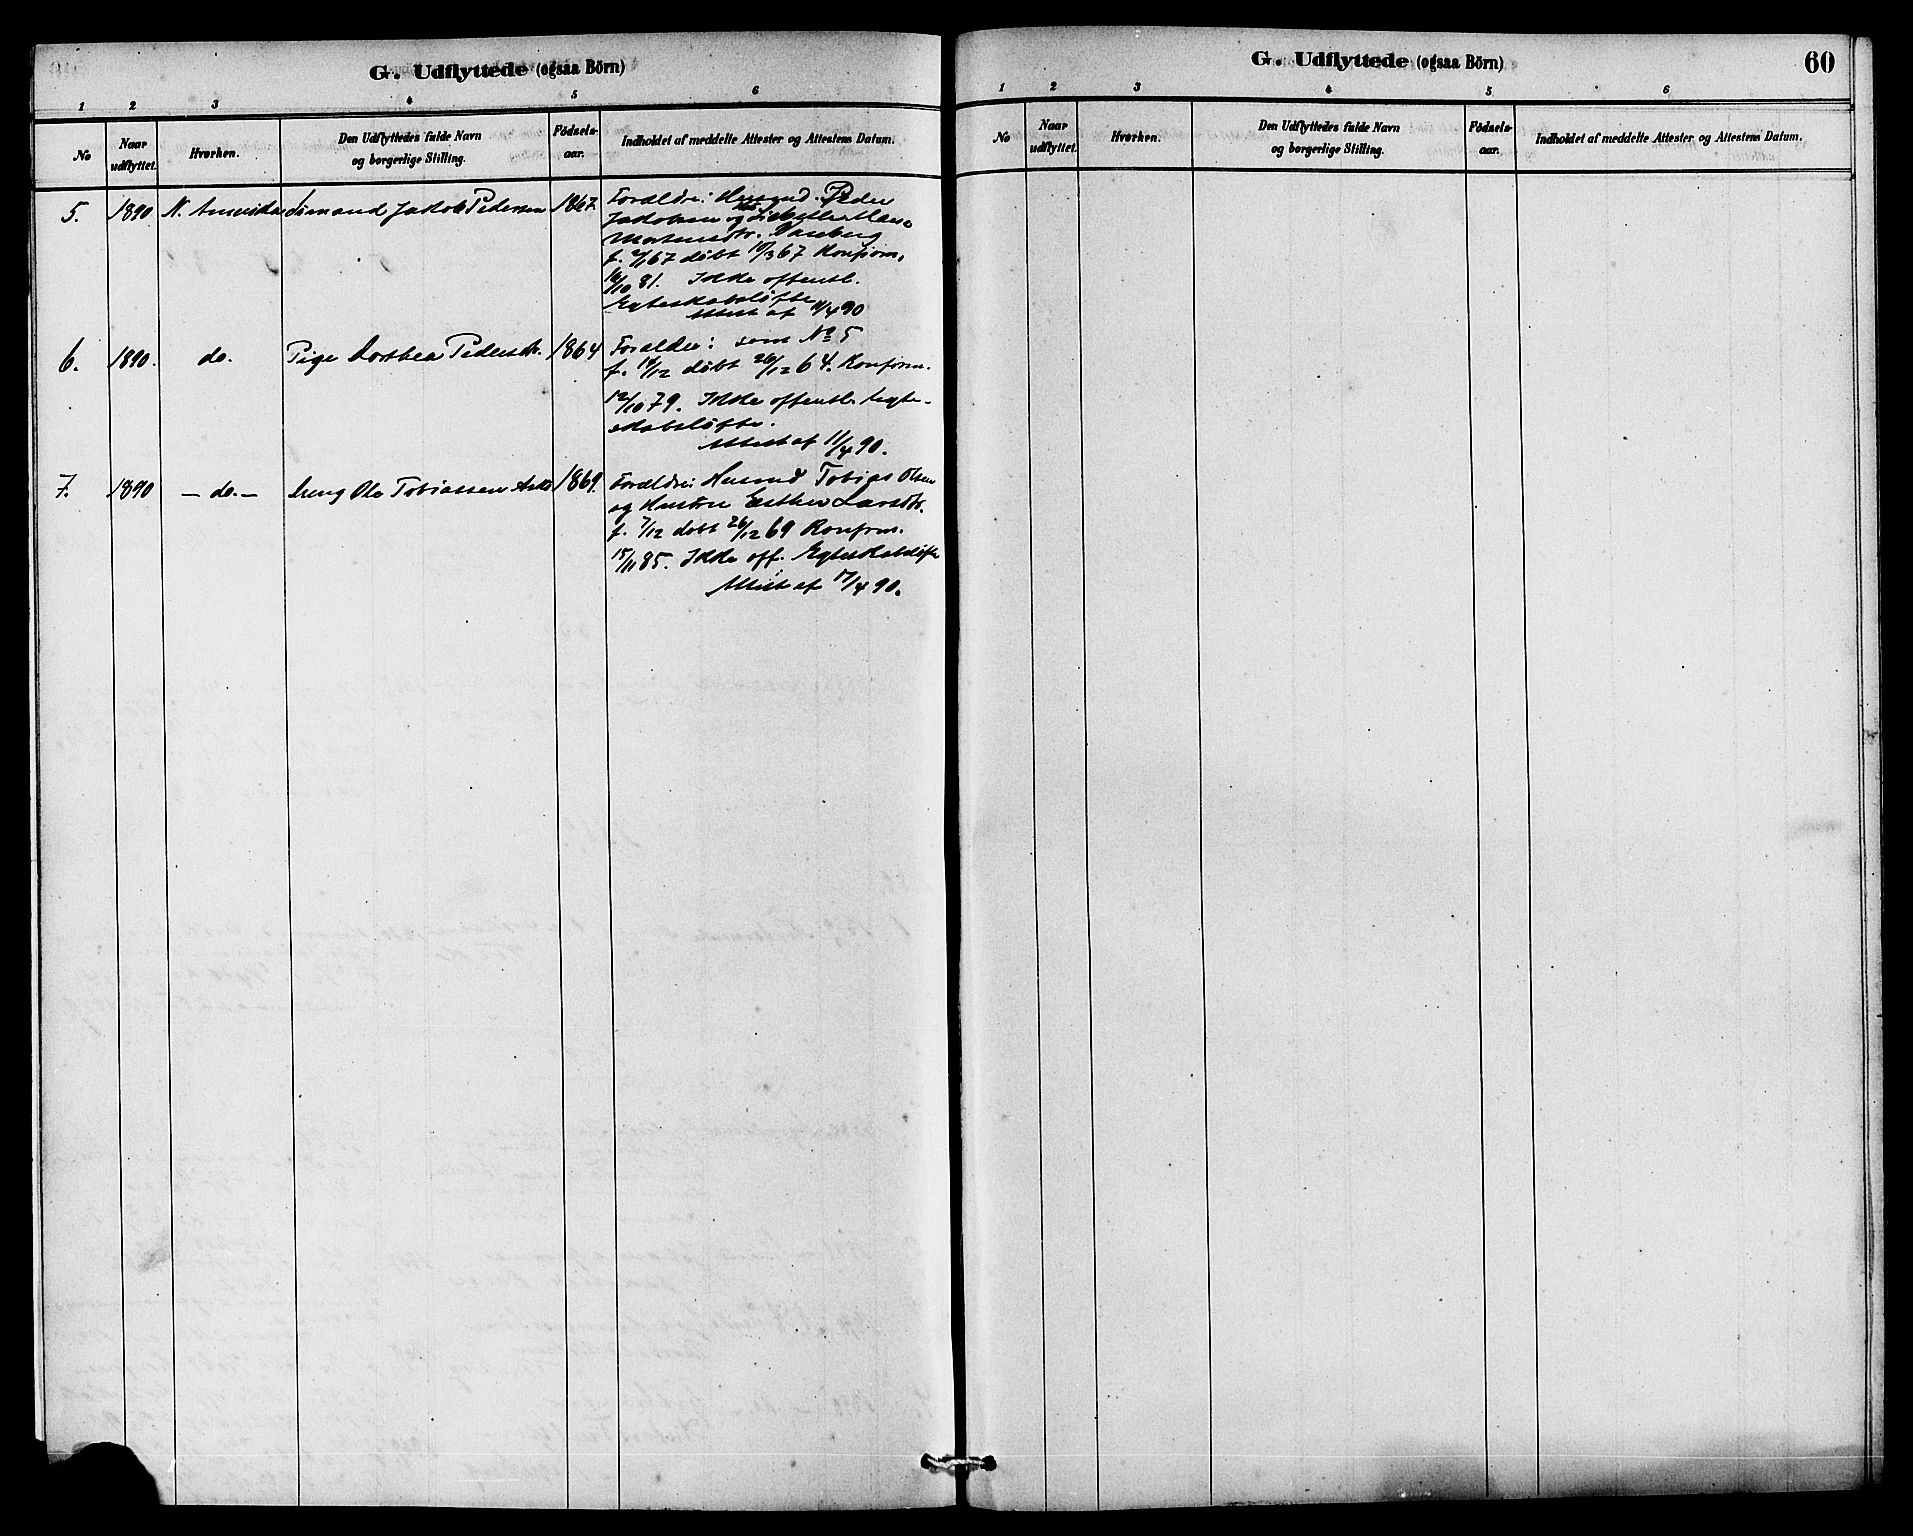 G. Udflyttede (ogsaa Börn)
1 2 3 4 5 6
No
Naar udflyttet.
Hvorhen.
Den Udflyttedes fulde Navn og borgerlige Stilling.
Födsels-aar.
Indholdet af meddelte Attester og Attestens Datum.
5. 1890 N. Amerika Sömand Jakob Pedersen 1867. Forældre: Husmd. Peder
Jakobsen og
Mortensdtr.
f. døbt 10/3 67 Konfirm.
16/10 81. Ikke offentl.
Egteskabsløfte
Attest af 11/4 90
6. 1890. do. Pige Dorthea Pedersdtr. 1864 Forældre: som No 5
f. 18/12 døbt 26/12 64. Konfirm.
12/10 79. Ikke offentl. Egte-
skabsløfte.
Attest af 11/4 90.
7. 1890 - do. - Ung. Ole Tobiassen 1869. Forældre: Husmd Tobias Olsen
og Hustru Esther Larsdtr.
f. 7/12 døbt 26/12 69 Konfirm.
15/11 85. Ikke off. Egteskabsløfte
Attest af 17/4 90.
G. Udflyttede (ogsaa Börn)
60
1 2 3 4 5 6
No
Naar udflyttet.
Hvorhen.
Den Udflyttedes fulde Navn og borgerlige Stilling.
Födsels-aar.
Indholdet af meddelte Attester og Attestens Datum.